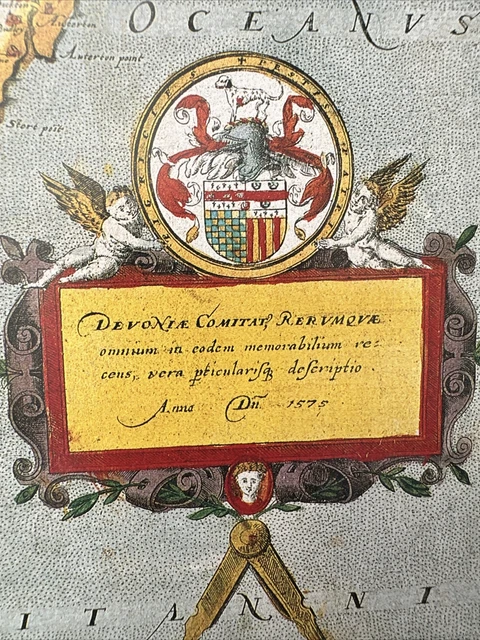 OCEANVS
Autorton point
Stert poit
PESTIS
DEVONIÆ COMITATꝰ RERVMQVÆ
omnium in eodem memorabilium re-
cens, vera pticularisqꝫ descriptio
Anno Dñi. 1575
ITANNI